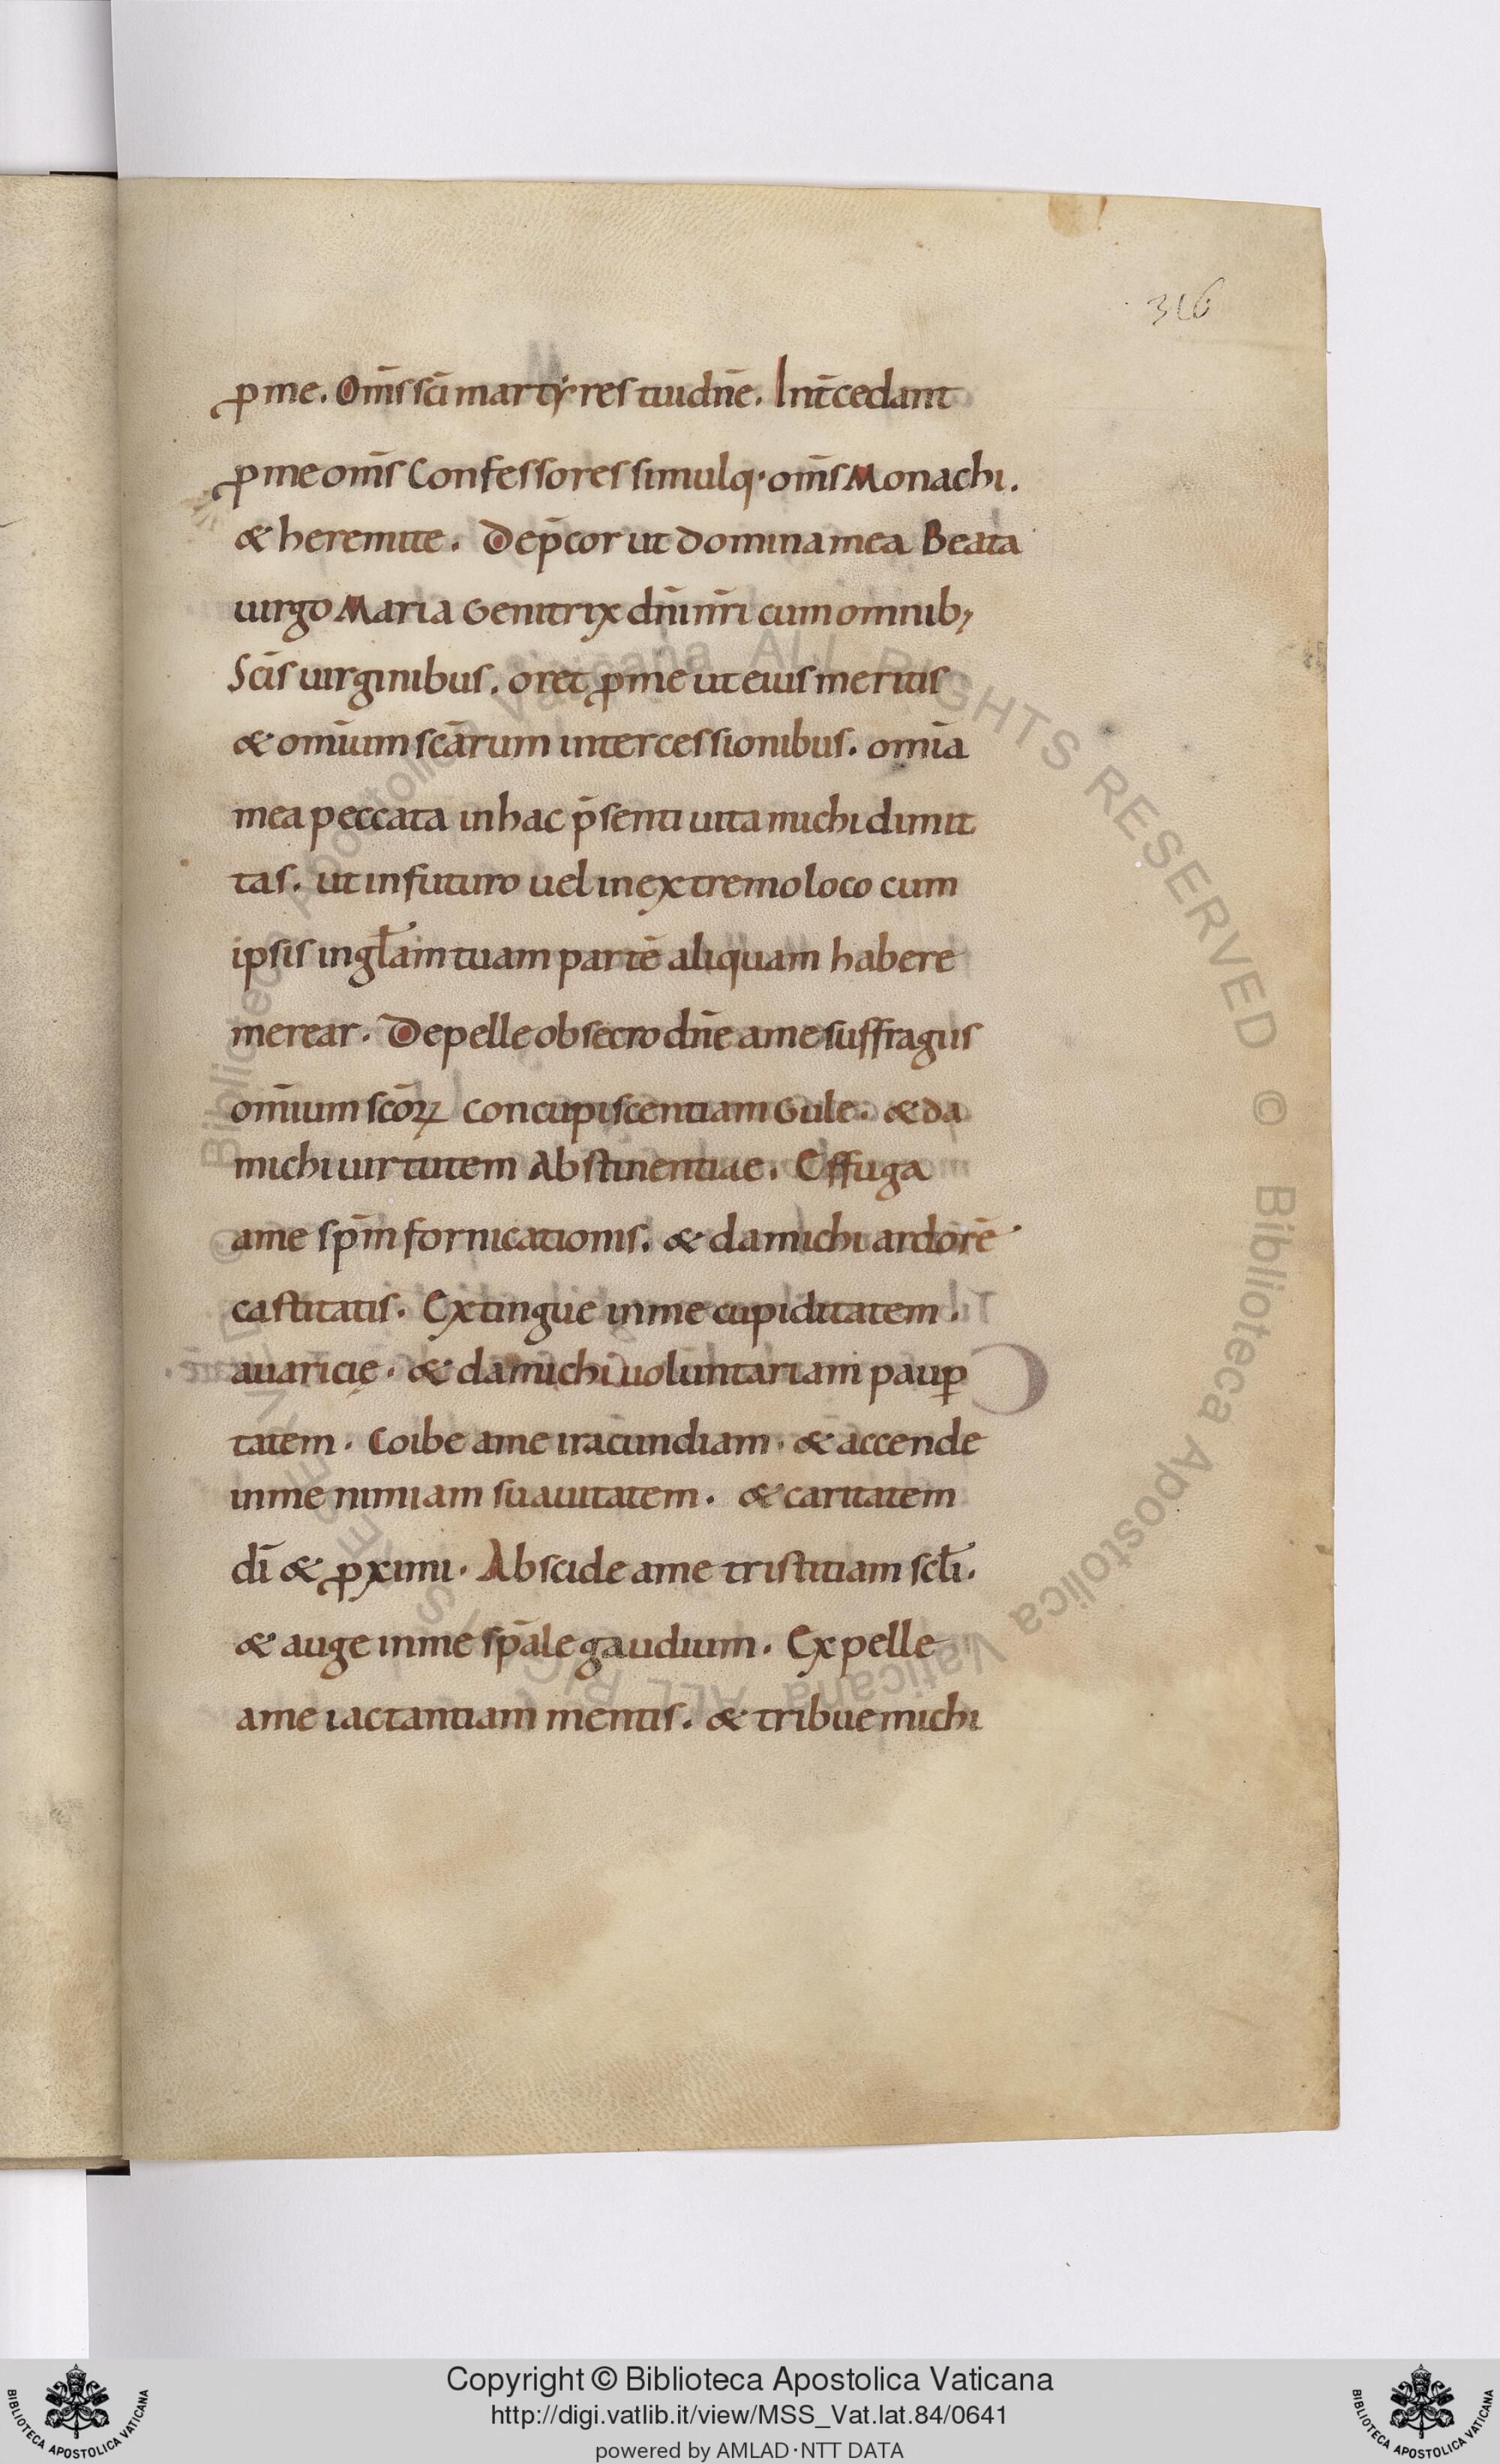 316
ꝓ me. Om̄s sc̄i martẏres tui dn̄e. Int̄cedant
ꝓ me om̄s Confessores simulq· om̄s Monachi.
& heremite. Dep̄cor ut domina mea Beata
uirgo Maria Genitrix dn̄i nr̄i cum omnib;
Sc̄is uirginibus. oret ꝓ me ut eius meritis
& om̄ium sc̄arum intercessionibus. om̄ia
mea peccata in hac p̄senti uita michi dimit
tas. ut in futuro uel in extremo loco cum
ipsis in gl̄am tuam partē aliquam habere
merear. Depelle obsecro dn̄e a me suffragiis
om̄ium sc̄oꝝ concupiscentiam Gule. & da
michi uirtutem Abstinentiae. Effuga
a me sp̄m fornicationis. & da michi ardorē
castitatis. Extingue in me cupiditatem.
auaricię. & da michi uoluntariam pauꝑ
tatem. Coibe a me iracundiam. & accende
in me nimiam suauitatem. & caritatem
dī & ꝓximi. Abscide a me tristitiam scl̄i.
& auge in me sp̄ale gaudium. Expelle
a me iactantiam mentis. & tribue michi
Biblioteca Apostolica Vaticana ALL RIGHTS RESERVED © Biblioteca Apostolica Vaticana ALL RIGHTS RESERVED ©
Copyright © Biblioteca Apostolica Vaticana
http://digi.vatlib.it/view/MSS_Vat.lat.84/0641
powered by AMLAD·NTT DATA
BIBLIOTECA APOSTOLICA VATICANA
BIBLIOTECA APOSTOLICA VATICANA